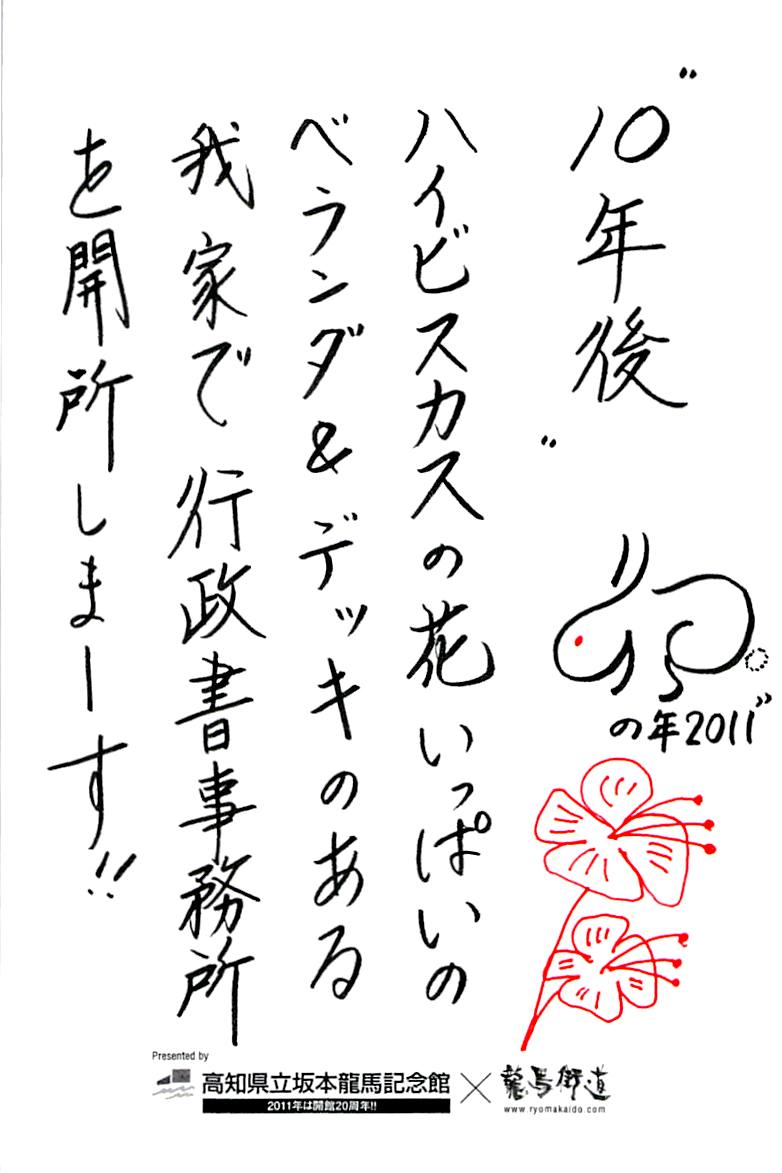 "10年後"
ハイビスカスの花いっぱいの
ベランダ&デッキのある
我家で行政書事務所
を開所しまーす!!
卯
の年2011"
Presented by
高知県立坂本龍馬記念館 × 龍馬街道
2011年は開館20周年!!
www.ryomakaido.com